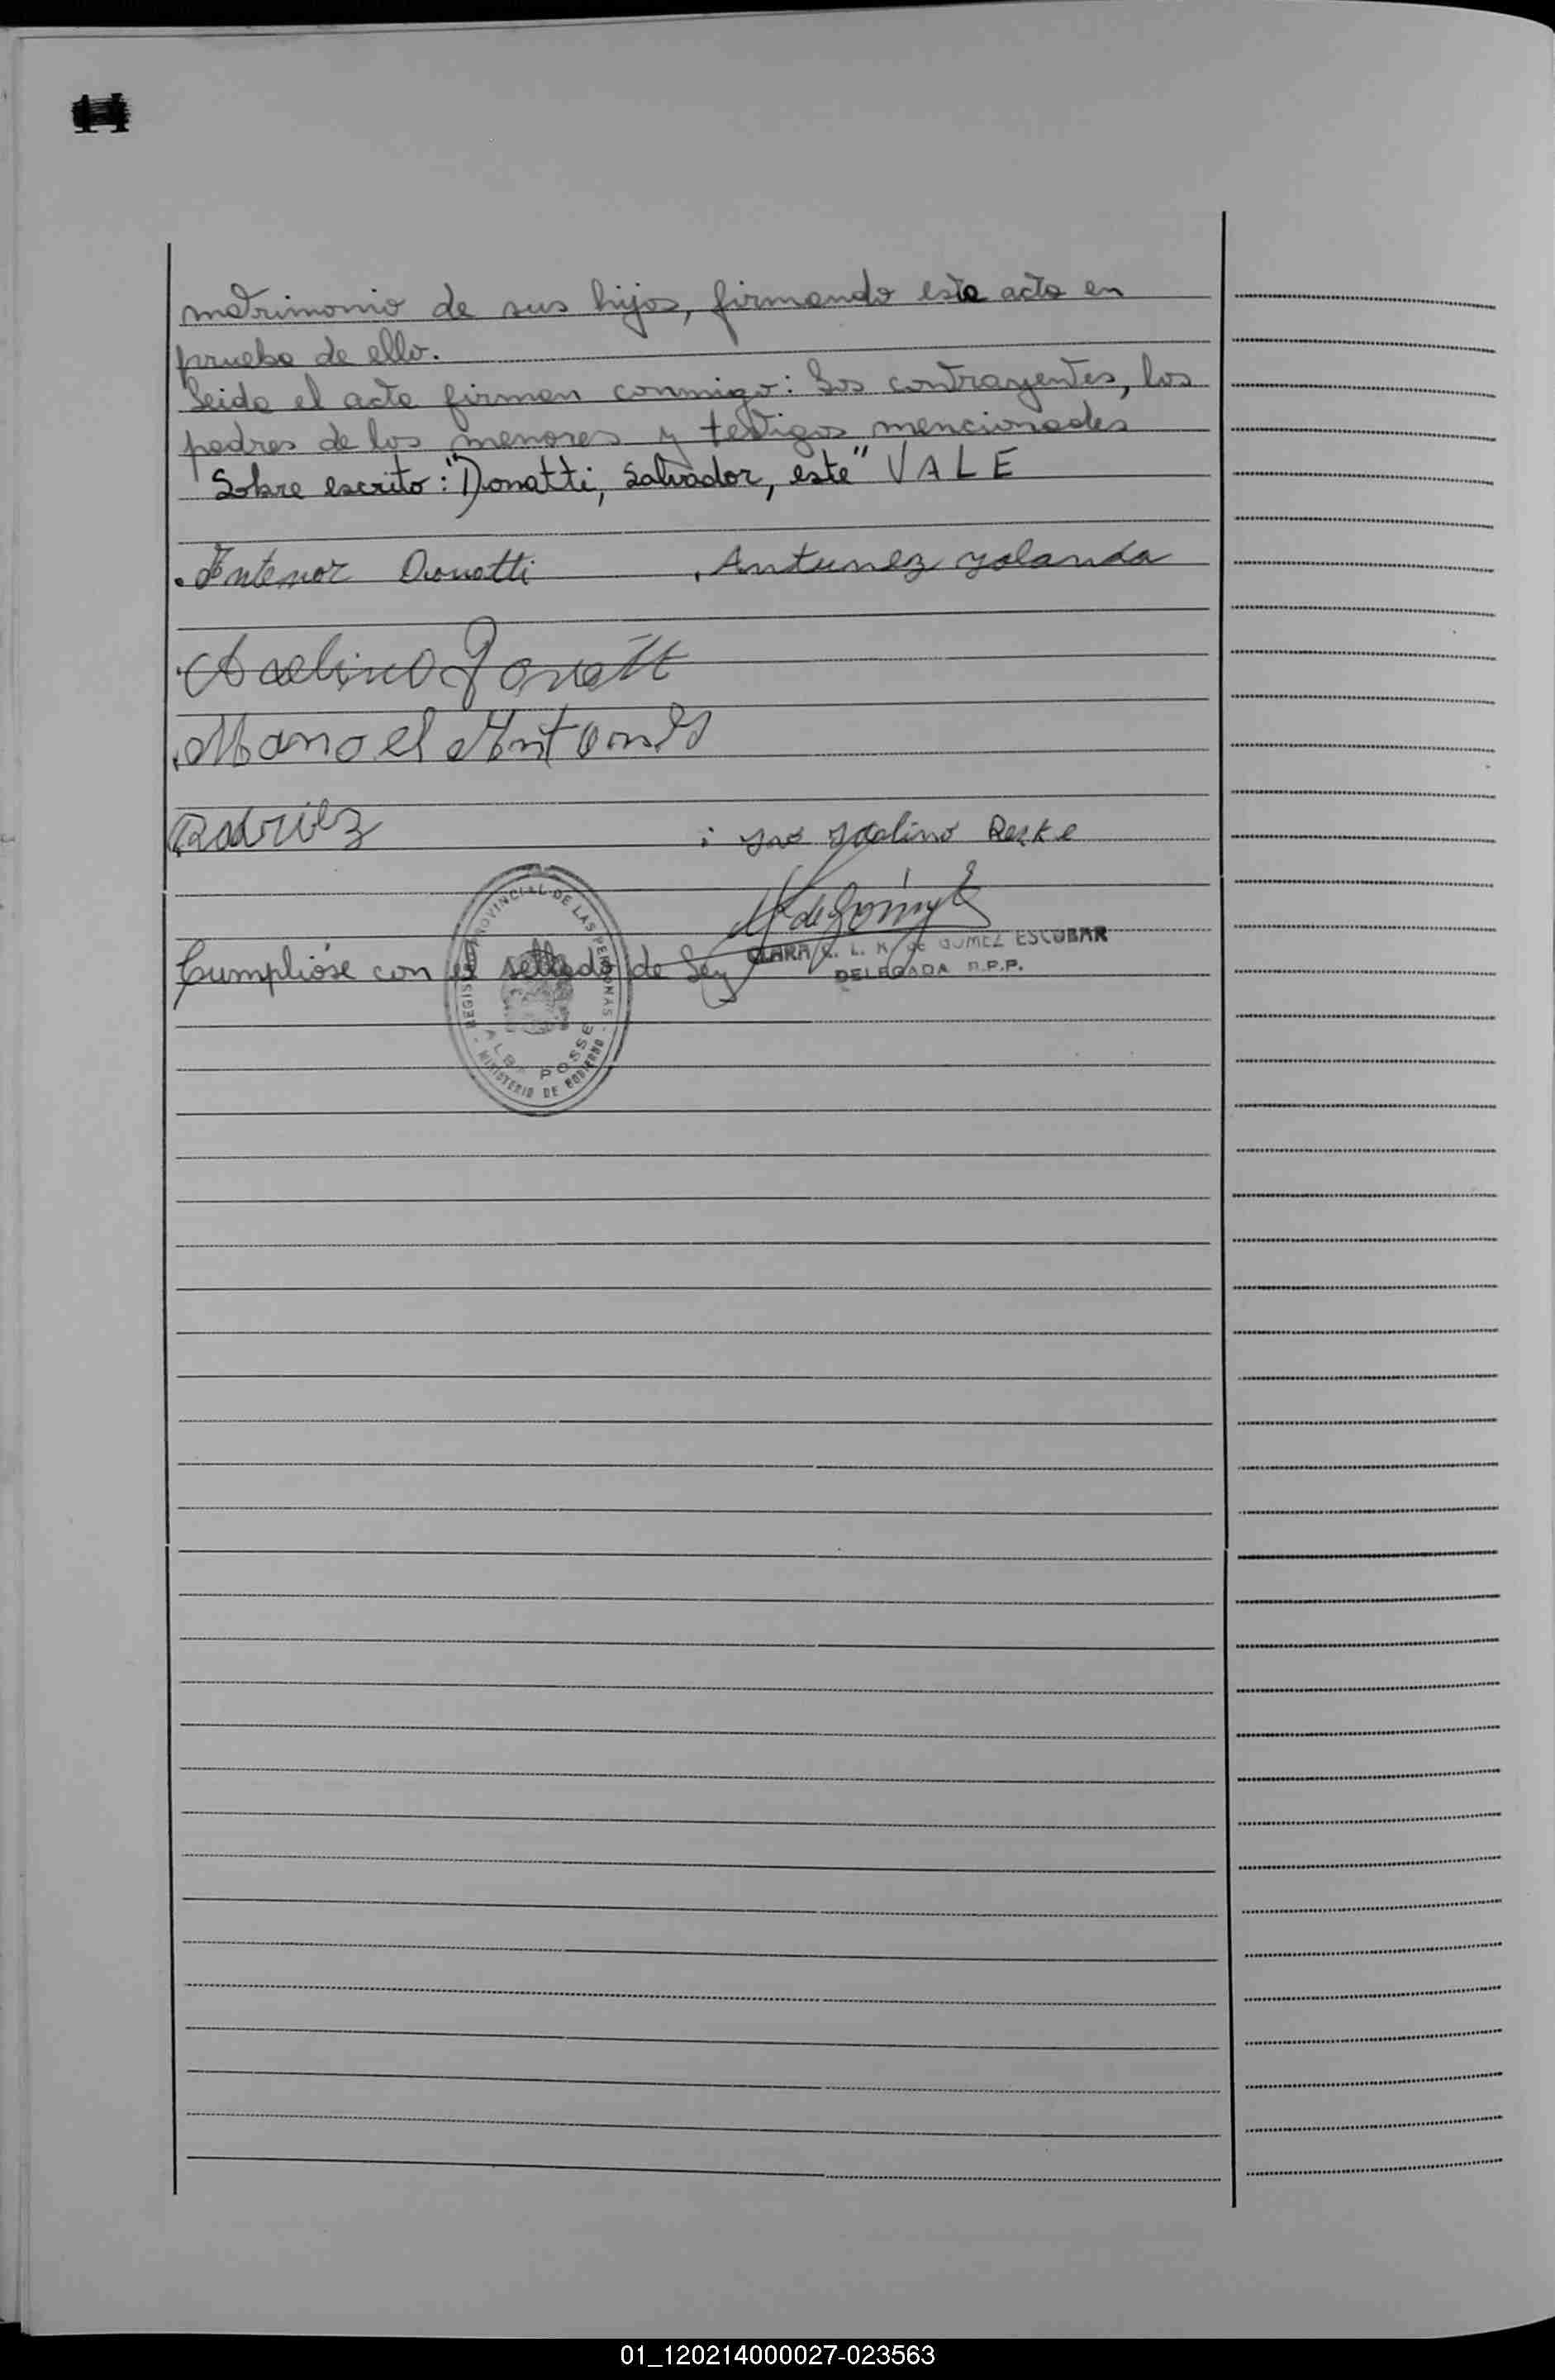 matrimonio de sus hijos, firmando este acta en
prueba de ello.
Leida el acta firman conmigo: Los contrayentes, los
padres de los menores y testigos mencionados
Sobre escrito: "Donatti, Salvador, este" VALE
Antenor Donatti Antunez Yolanda
Avelino Donatti
Manoel Antunes
Rodriez Reske
Cumplióse con el sellado de Ley
CLARA DE GOMEZ ESCOBAR
DELEGADA R.P.P.
REGISTRO PROVINCIAL DE LAS PERSONAS
ALBA POSSE
MINISTERIO DE GOBIERNO
01_120214000027-023563